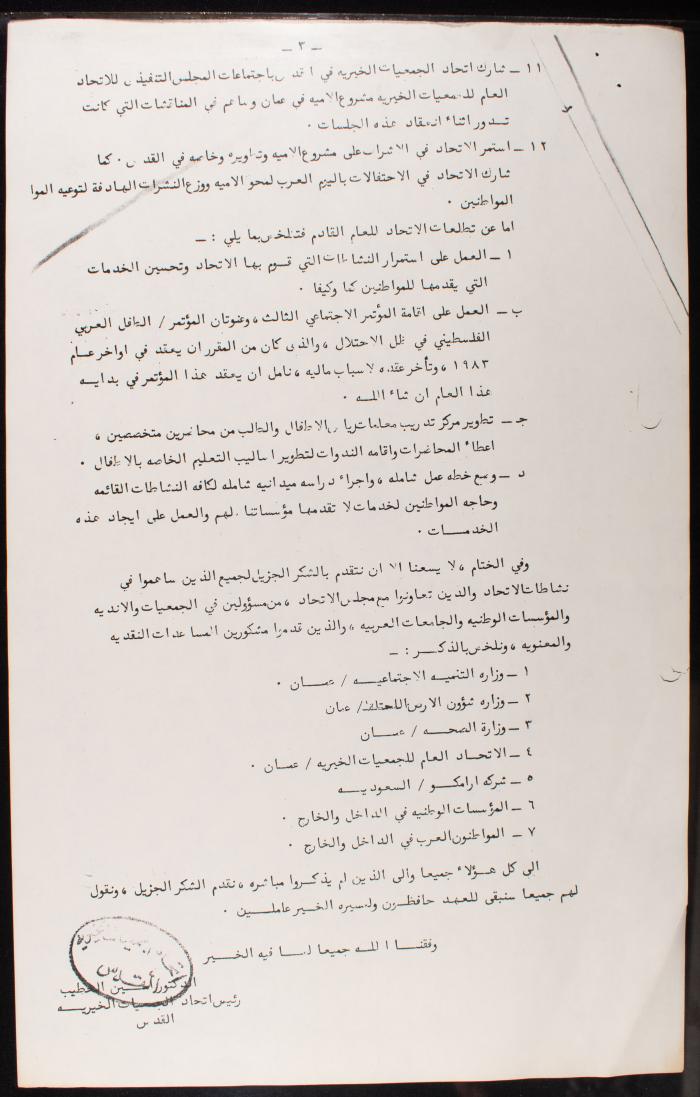 — ٣ —
١١ — شارك اتحاد الجمعيات الخيريه في القدس باجتماعات المجلس التنفيذي للاتحاد
العام للجمعيات الخيريه مشروع الاميه في عمان وساهم في المناقشات التي كانت
تدور اثناء انعقاد هذه الجلسات ٠
١٢ — استمر الاتحاد في الاشراف على مشروع الاميه وتطويره وخاصه في القدس ٠ كما
شارك الاتحاد في الاحتفالات باليوم العرب لمحو الاميه ووزع النشرات الهادفة لتوعيه الموا
المواطنين ٠
اما عن تطلعات الاتحاد للعام القادم فتلخص بما يلي : —
١ — العمل على استمرار النشاطات التي قوم بها الاتحاد وتحسين الخدمات
التي يقدمها للمواطنين كما وكيفا ٠
ب — العمل على اقامة المؤتمر الاجتماعي الثالث ، وعنوان المؤتمر / الطفل العربي
الفلسطيني في ظل الاحتلال ، والذى كان من المقرر ان يعقد في اواخر عام
١٩٨٣ ، وتأخر عقده لاسباب ماليه ، نامل ان يعقد هذا المؤتمر في بدايه
هذا العام ان شاء الله ٠
جـ — تطوير مركز تدريب معلمات رياض الاطفال والطلب من محاضرين متخصصين ،
اعطاء المحاضرات واقامه الندوات لتطوير اساليب التعليم الخاصه بالاطفال ٠
د — وضع خطه عمل شامله ، واجراء دراسه ميدانيه شامله لكافه النشاطات القائمه
وحاجه المواطنين لخدمات لا تقدمها مؤسساتنا لهم والعمل على ايجاد هذه
الخدمات ٠
وفي الختام ، لا يسعنا الا ان نتقدم بالشكر الجزيل لجميع الذين ساهموا في
نشاطات الاتحاد والذين تعاونوا مع مجلس الاتحاد ، من مسؤولين في الجمعيات والانديه
والمؤسسات الوطنيه والجامعات العربيه ، والذين قدموا مشكورين المساعدات النقديه
والمعنويه ، ونلخص بالذكر : —
١ — وزاره التنميه الاجتماعيه / عمان ٠
٢ — وزاره شؤون الارض المحتله / عمان
٣ — وزارة الصحه / عمان
٤ — الاتحاد العام للجمعيات الخيريه / عمان ٠
٥ — شركه ارامكو / السعوديه
٦ — المؤسسات الوطنيه في الداخل والخارج ٠
٧ — المواطنون العرب في الداخل والخارج ٠
الى كل هؤلاء جميعا والى الذين لم يذكروا مباشره ، نقدم الشكر الجزيل ، ونقول
لهم جميعا سنبقى للعهد حافظون ولمسيره الخير عاملين ٠
وفقنا الله جميعا لما فيه الخير
الدكتور امين الخطيب
رئيس اتحاد الجمعيات الخيريه
القدس